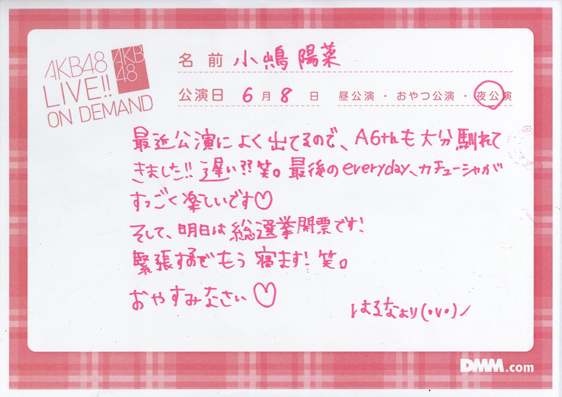 AKB48
LIVE!!
ON DEMAND
AKB
48
名前 小嶋陽菜
公演日 6月8日 昼公演・おやつ公演・夜公演
最近公演によく出てるので、A6thも大分馴れて
きました!!遅い??笑。最後のeveryday、カチューシャが
すっごく楽しいです♡
そして、明日は総選挙開票です!
緊張するでもう寝ます!笑。
おやすみなさい♡
はるなより(・v・)ノ
DMM.com